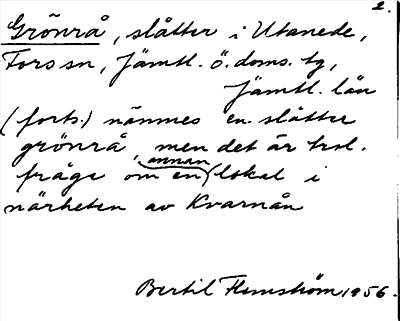 2.
Grönrå, slåtter i Utanede,
Fors sn, Jämtl. ö. doms. tg,
Jämtl. län
(forts.) nämnes en slåtter
grönrå, men det är trol.
fråge om en annan lokal i
närheten av Kvarnån
Bertil Flemström 1956.